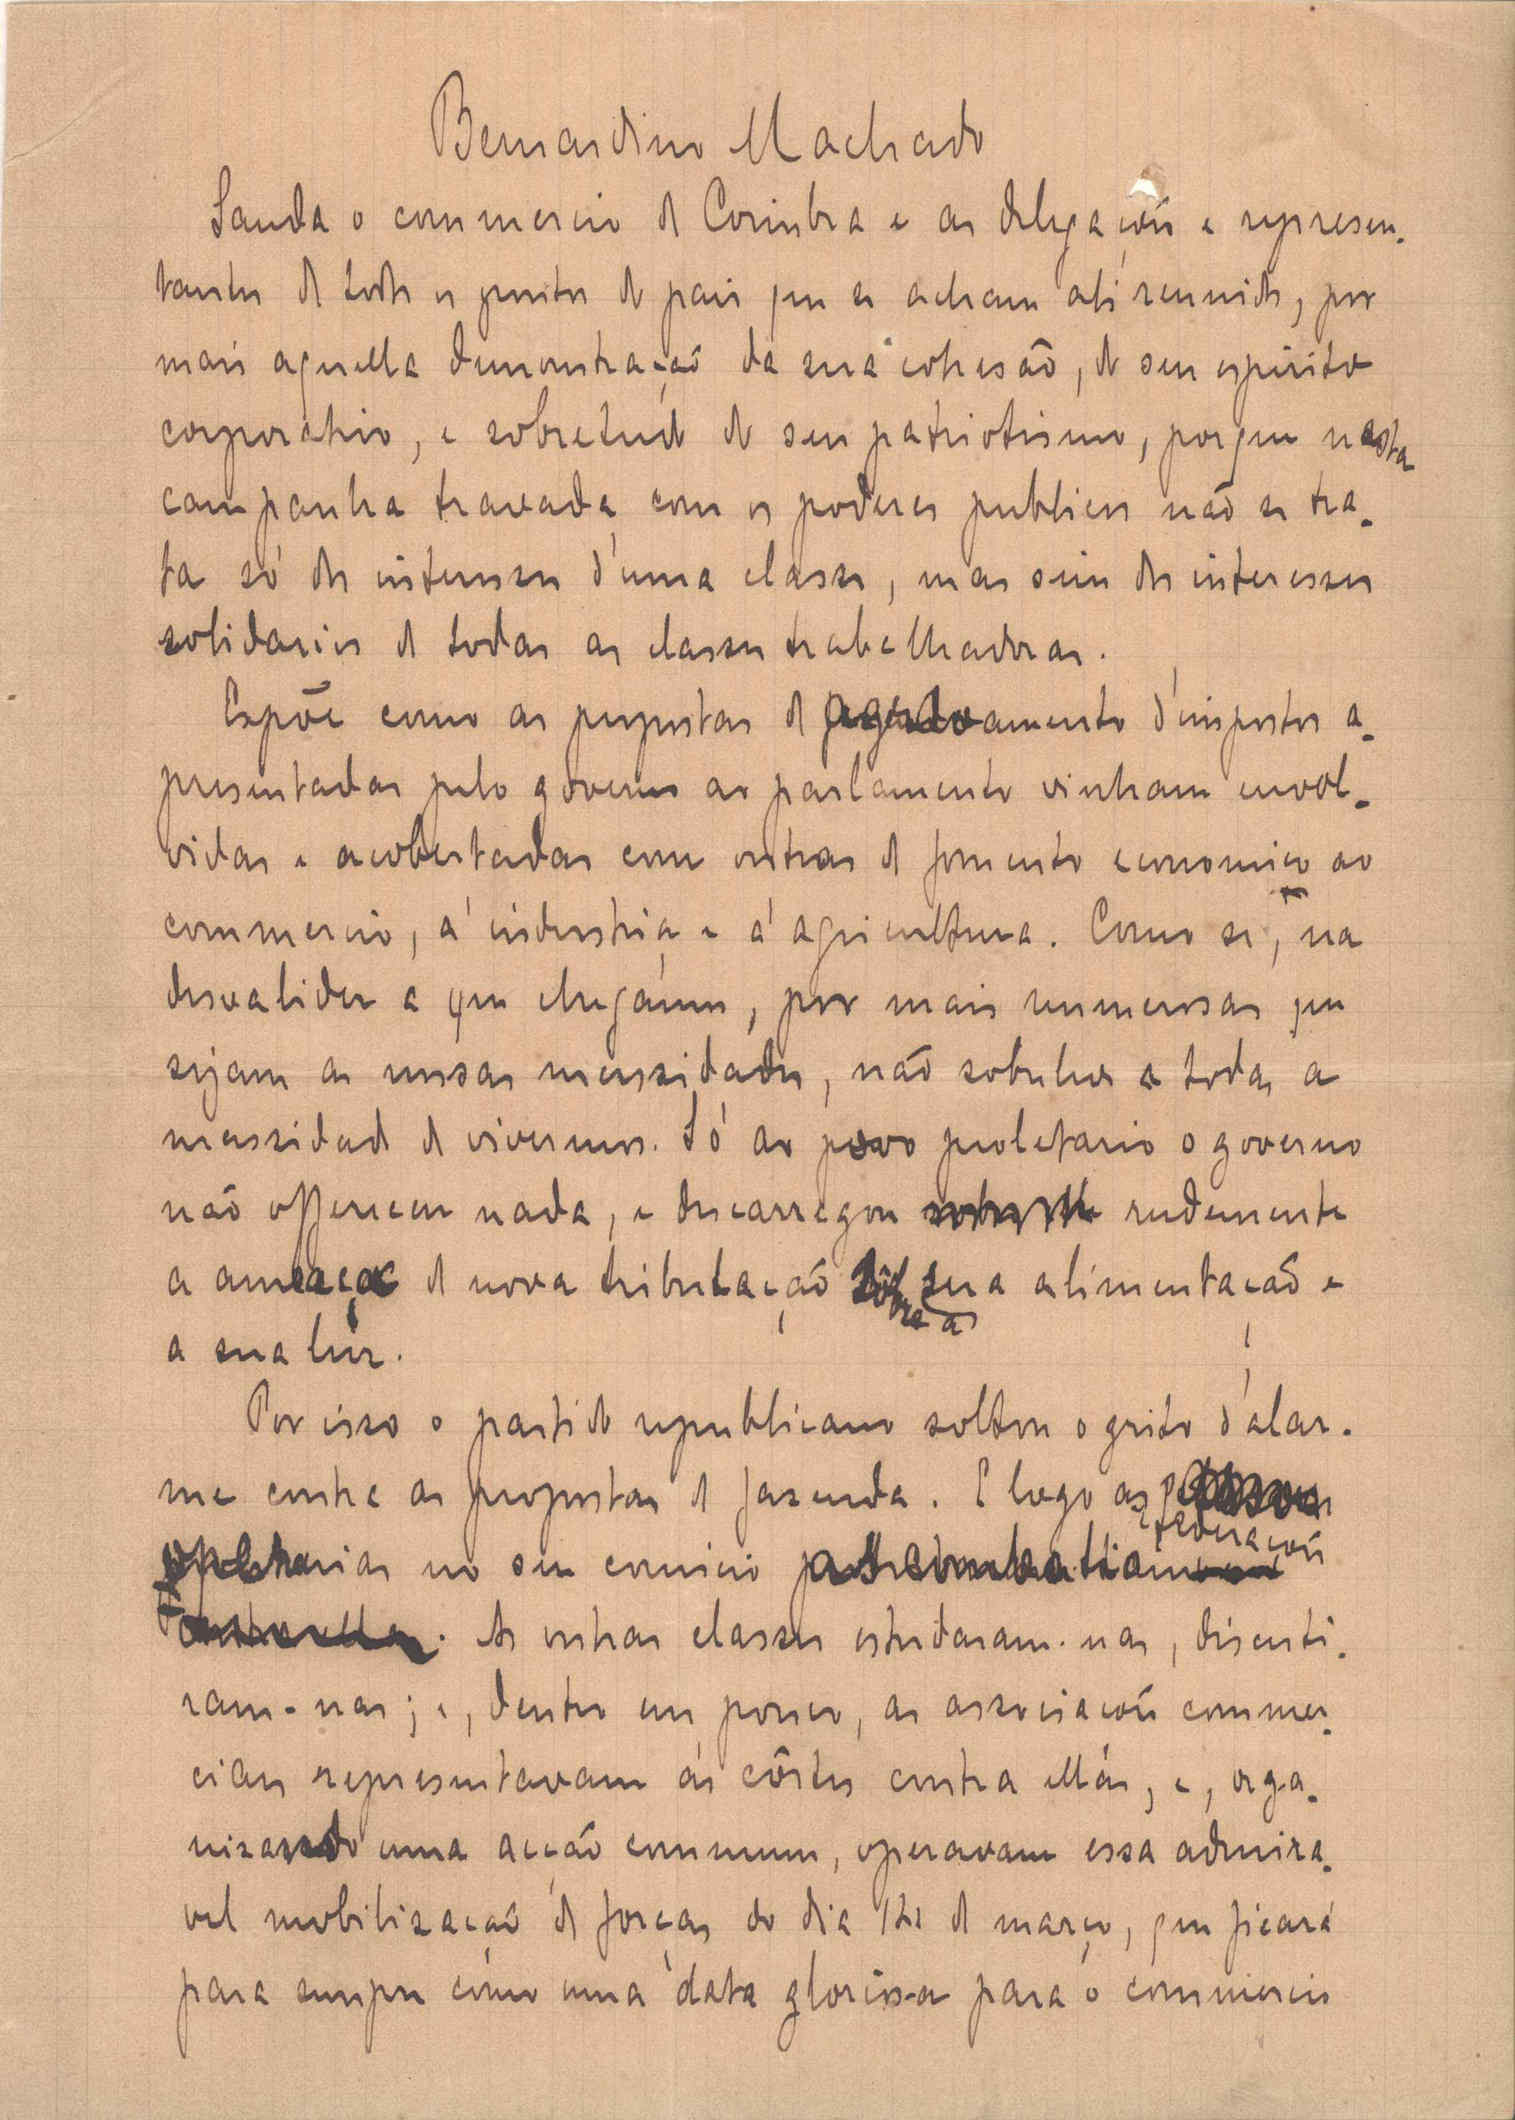 Bernardino Machado
Sauda o commercio de Coimbra e as delegações e represen-
tantes de todos os pontos do pais que se acham ali reunidos, por
mais aquella demonstração da sua cohesão, do seu espirito
corporativo, e sobretudo do seu patriotismo, porque nesta
campanha travada com os poderes publicos não se tra-
ta só dos interesses d'uma classe, mas sim dos interesses
solidarios de todas as classes trabalhadoras.
Expõe como as propostas de aggravamento d'impostos a-
presentadas pelo governo ao parlamento vinham envol-
vidas e acobertadas com outras de fomento economico ao
commercio, á industria e á agricultura. Como se, na
desvalidez a que chegámos, por mais numerosas que
sejam as nossas necessidades, não sobreleve a todas a
necessidade de vivermos. Só ao povo proletario o governo
não offereceu nada, e descarregou rudemente
a ameaça de nova tributação sobre a sua alimentação e
a sua luz.
Por isso o partido republicano soltou o grito d'alar-
me contra as propostas de fazenda. E logo as federações
operarias no seu comicio
As outras classes estudaram-nas, discuti-
ram-nas; e, dentro em pouco, as associações commer-
ciaes representavam ás côrtes contra ellas, e, orga-
nizando uma acção commum, operavam essa admira-
vel mobilização de forças do dia 12 de março, que ficará
para sempre como uma data gloriosa para o commercio